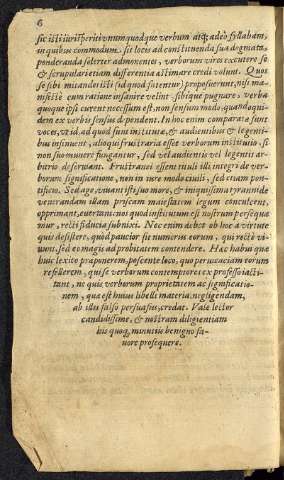 6
sic isti iurisperiti unumquodque verbum atq; adeò syllabam,
in quibus commodum sit locis ad constituenda sua dogmata,
ponderanda solerter admonentes, verborum vires excutere se
& scrupularietiam differentia æstimare credi volunt. Quos
se sibi mutandetisti id quod scitentur) proposuerunt, nisi ma-
nifestè cum ratione insanire velint, sibique pugnare. Verba
quoque ipsi curent necessum est, non sensus modò, quandoqui-
dem ex verbis sensus dependent. In hoc enim comparatæ sunt
voces, ut id, ad quod sunt institutæ, & audientibus & legenti-
bus insinuent, alioqui frustraria esset verborum institutio, si
non suo munere fungantur, sed vel audientis vel legentis ar-
bitrio deserviant. Frustranei essent multi integri de ver-
borum significatione, non in iure modò civili, sed etiam pon-
tificio. Sed age, vivant isti suo more, & iniquissima tyrannide
venerandam illam priscam maiestatem legum conculcent,
opprimant, evertant: nos quod institutum est nostrum persequa-
mur, recti fiducia subnixi. Nec enim debet ob hoc à virtute
quis desistere, quod pauciores sunt numero eorum, qui rectè vi-
vunt, sed eo magis ad probitatem contendere. Hæc habui quæ
huic lexico præponerem, poscente loco, quo pervicaciam eorum
refellerem, qui se verborum contemptores ex professo iacti-
tant, ne quis verborum proprietatem ac significatio-
nem, quæ est huius libelli materia, negligendam,
ab illis falsò persuasus, credat. Vale lector
candidissime, & nostram diligentiam
his quoq; minutiis benigno fa-
vore prosequere.